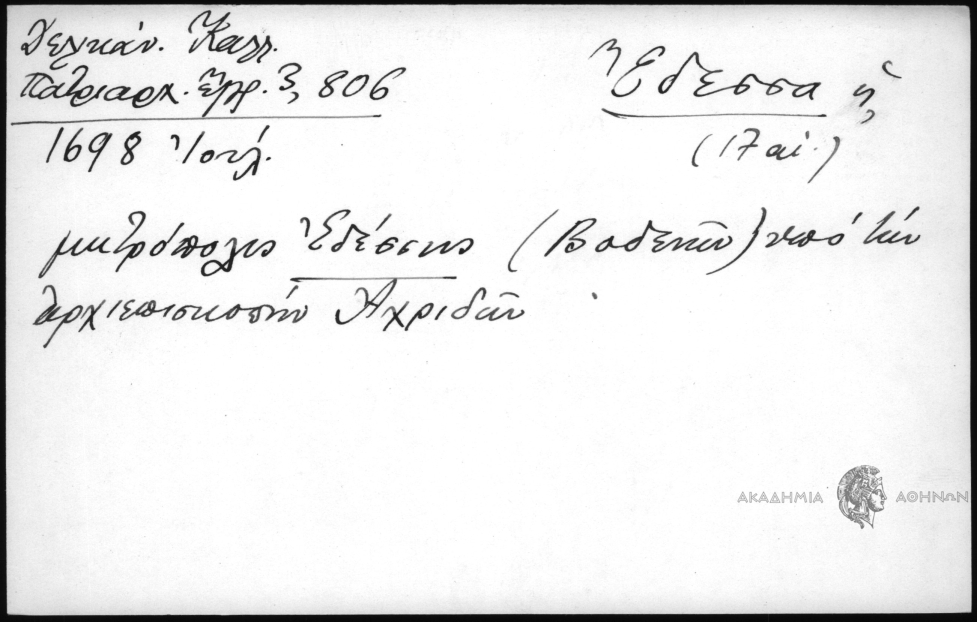 Δελικάν. Καλλ.
Πατριαρχ. ἔγγρ. 3, 806
1698 Ἰουλ.
Ἔδεσσα ἡ
(17 αἰ.)
μητρόπολις Ἐδέσσης (Βοδενῶν) ὑπό τήν
ἀρχιεπισκοπήν Ἀχριδῶν
ΑΚΑΔΗΜΙΑ ΑΘΗΝΩΝ